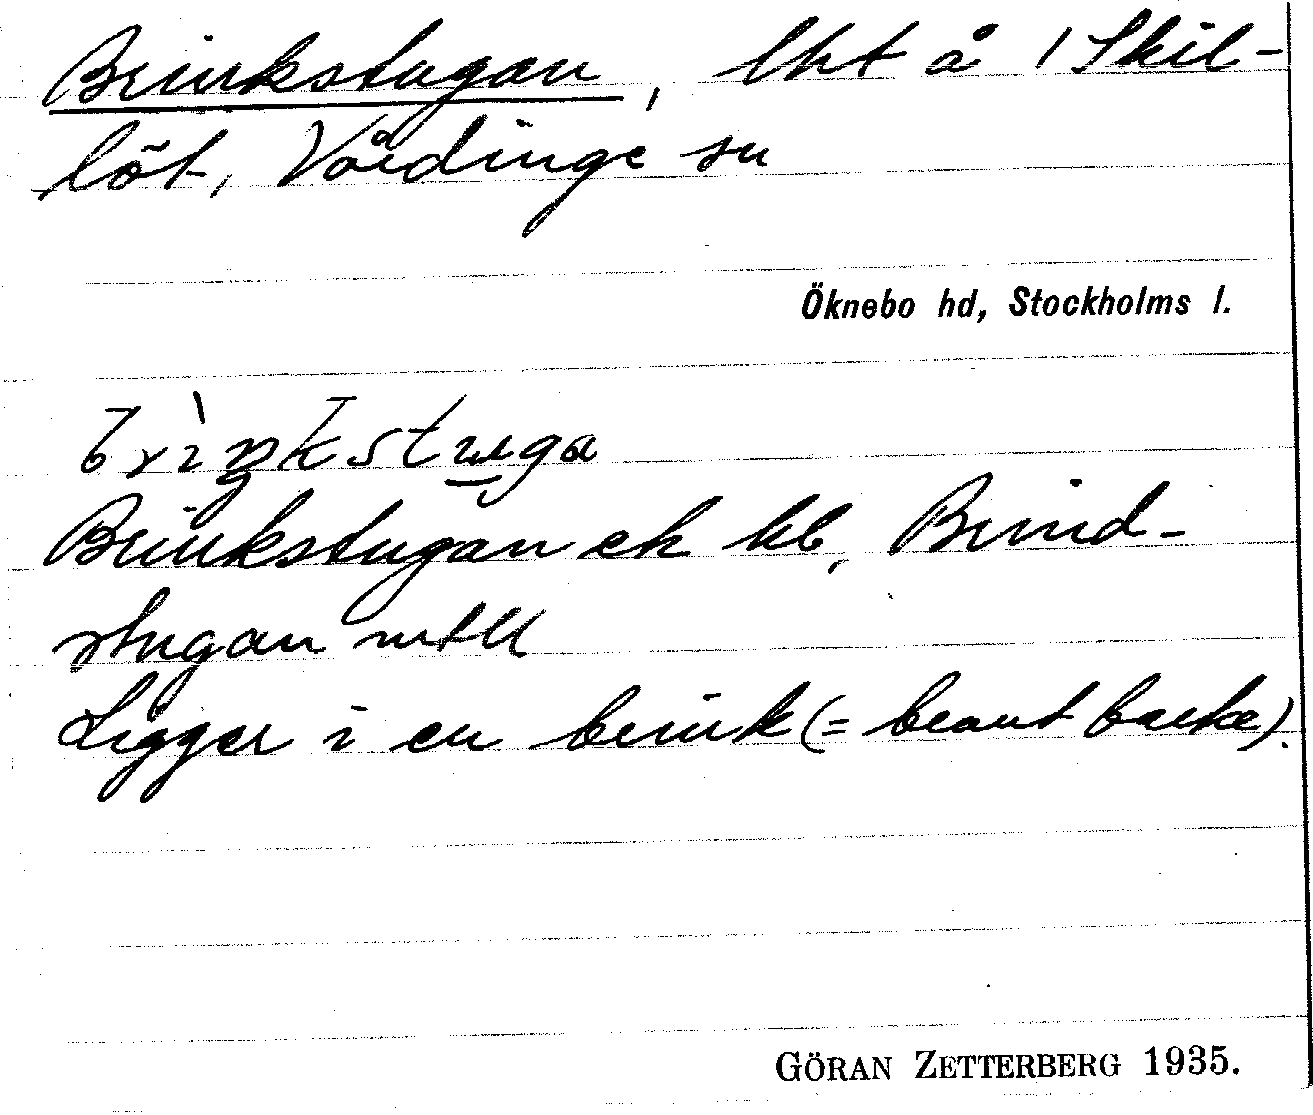 Brinkstugan, lht å 1 Skil-
löt, Vårdinge sn
Öknebo hd, Stockholms l.
brìŋkstuga
Brinkstugan ek kb, Brind-
stugan mtll
Ligger i en brink (= brant backe).
GÖRAN ZETTERBERG 1935.